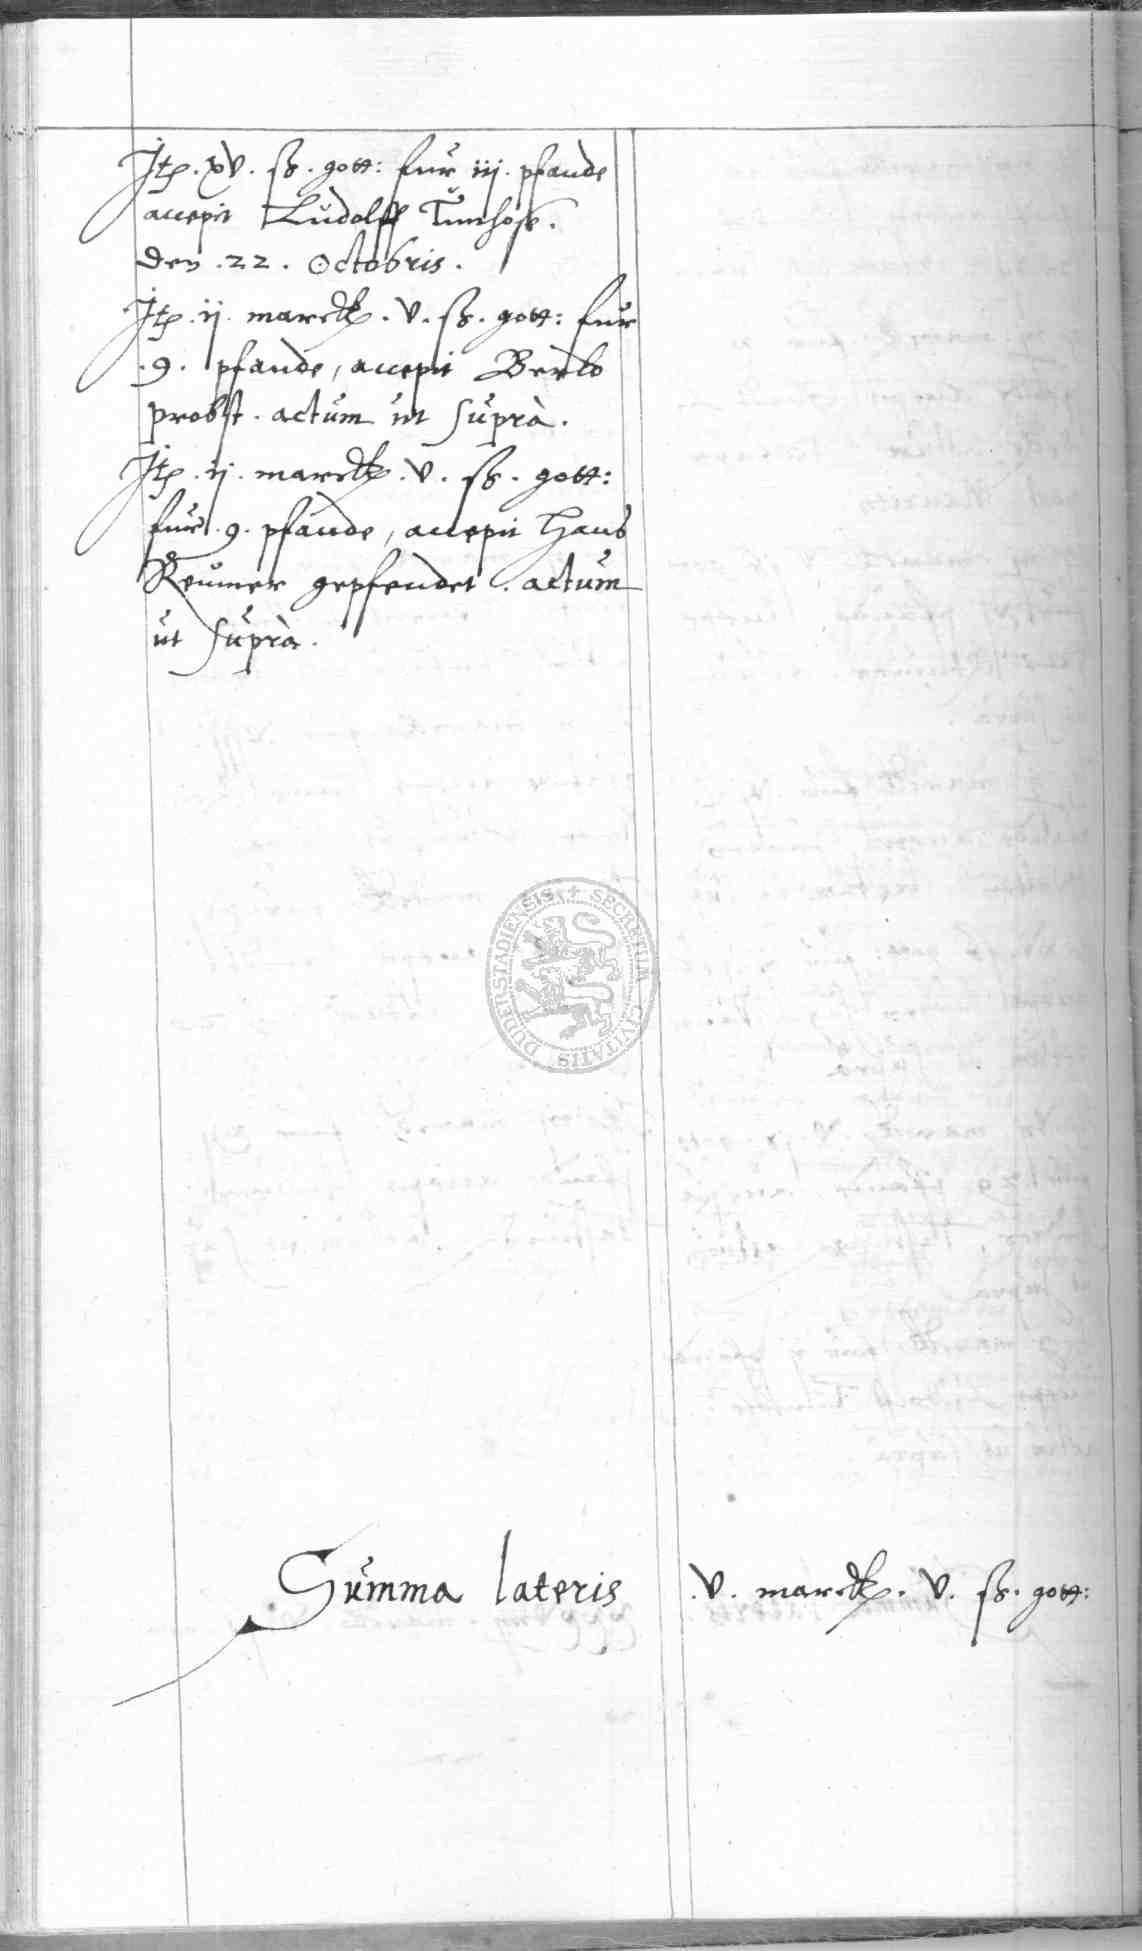 Itꝫ. xv. ß. gott: fur iij. pfande
accepit Ludolff Timhose.
den .22. Octobris.
Itꝫ .ij. marck. v. ß. gott: fur
.9. pfande, accepit
probst. actum ut suprà.
Itꝫ .ij. marck. v. ß. gott:
fur .9. pfande, accepit Hans
Reumer gepfendet. actum
ut suprà.
SECRETUM CIVITATIS DUDERSTADIENSIS
Summa lateris .v. marck. v. ß. gott: